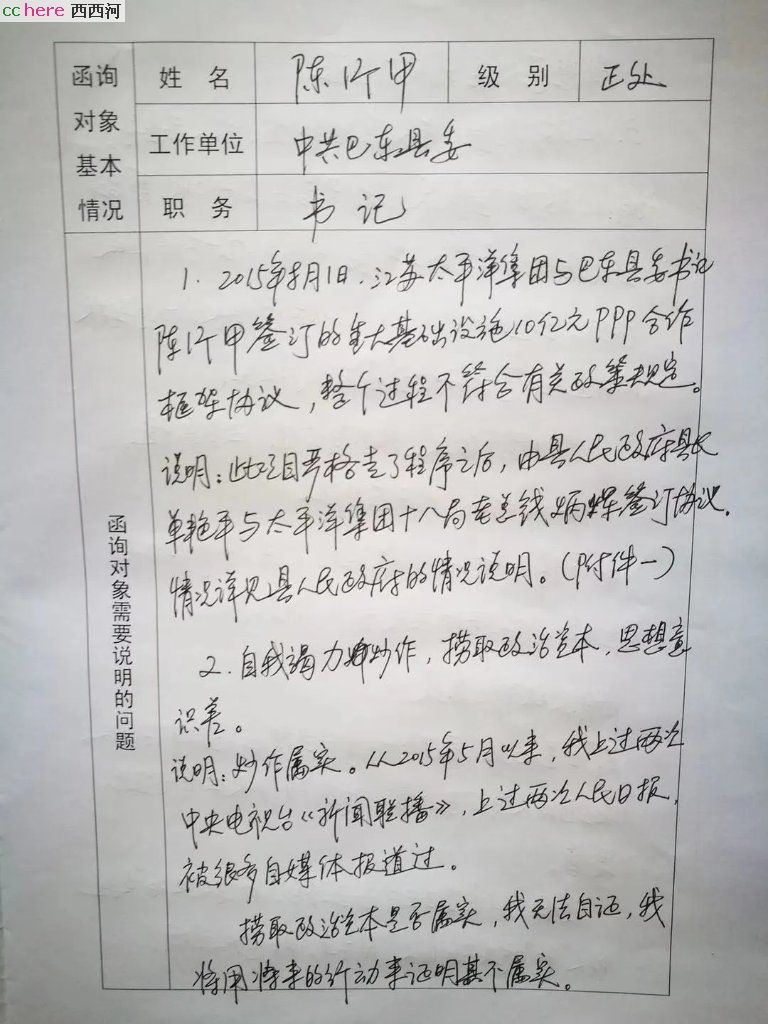 cchere 西西河
函询对象基本情况
姓 名 陈行甲 级 别 正处
工作单位 中共巴东县委
职 务 书记
函询对象需要说明的问题
1. 2015年8月1日,江苏太平洋集团与巴东县委书记
陈行甲签订的重大基础设施10亿元PPP合作
框架协议,整个过程不符合有关政策规定。
说明:此项目严格走了程序之后,由县人民政府县长
单艳平与太平洋集团十八局老总钱炳辉签订协议,
情况详见县人民政府的情况说明。(附件一)
2. 自我竭力炒作,捞取政治资本,思想意
识差。
说明:炒作属实。从2015年5月以来,我上过两次
中央电视台《新闻联播》,上过两次人民日报,
被很多自媒体报道过。
捞取政治资本是否属实,我无法自证,我
将用将来的行动来证明其不属实。